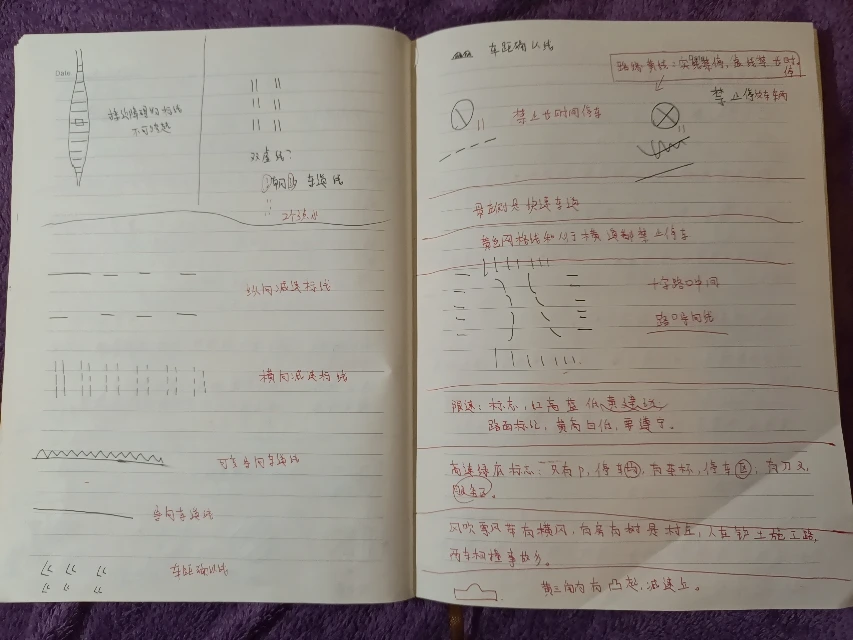 Date
接近障碍物标线
不可跨越
双虚线?
车道线
纵向减速标线
横向减速标线
可变导向车道线
导向车道线
车距确认线
车距确认线
路缘黄线：实线禁停，虚线禁长时
停
禁止长时间停车
禁止停放车辆
最左侧是快速车道
黄色网格线和人行横道都禁止停车
十字路口中间
路口导向线
限速：标志，红高蓝低
路面标记，黄高白低
高速绿底标志：只有P，停车，有茶杯，停车区，有刀叉，
服务区。
风吹 有横风，有房有树是村庄，人在铲土施工路，
两车相撞事故多。
黄三角内有凸起，减速丘。